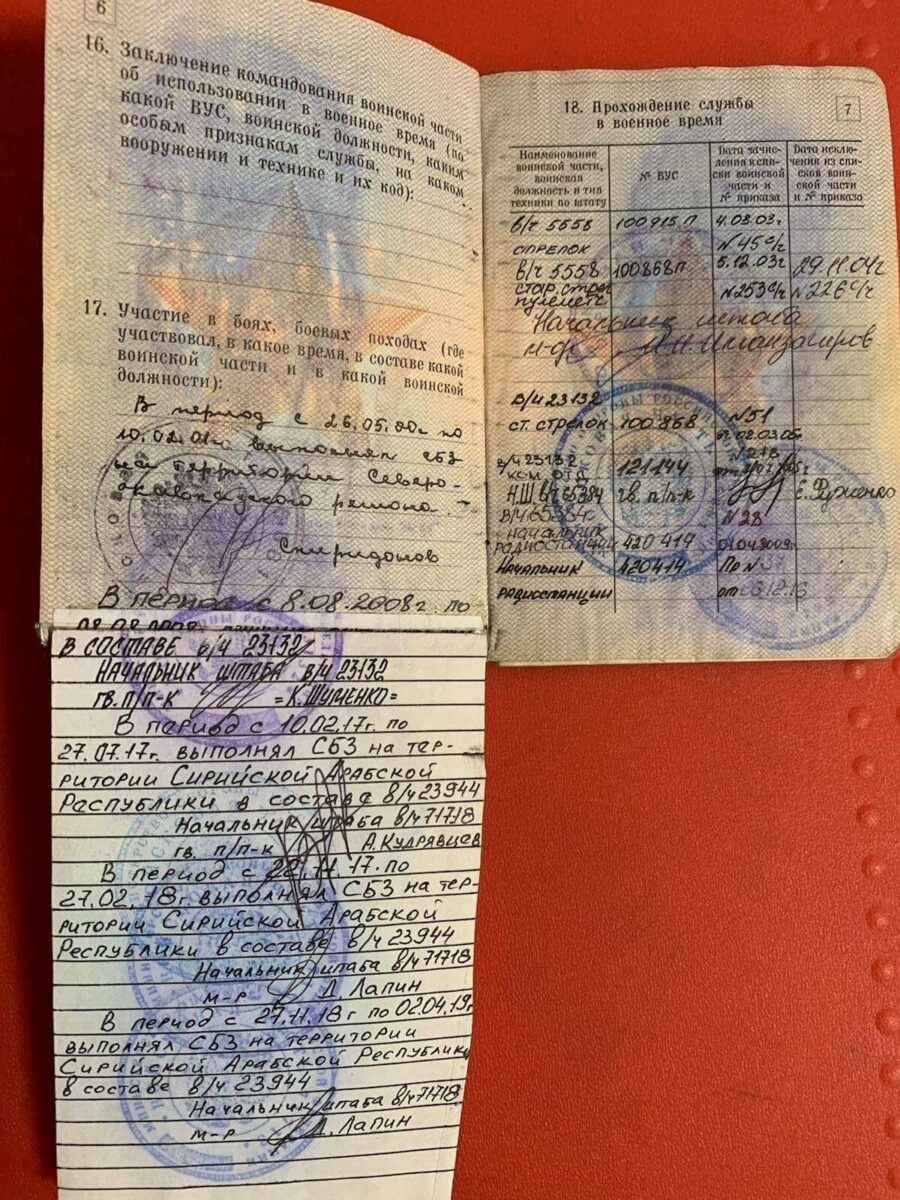 6
16. Заключение командования воинской части
об использовании в военное время (по
какой ВУС, воинской должности, каким
особым признакам службы, на каком
вооружении и технике и их код):
17. Участие в боях, боевых походах (где
участвовал, в какое время, в составе какой
воинской части и в какой воинской
должности):
В период с 26.05.00г по
10.02.01г выполнял СБЗ
на территории Северо-
кавказского региона.
Спиридонов
В период с 8.08.2008г. по
В СОСТАВЕ в/ч 23132
НАЧАЛЬНИК ШТАБА в/ч 23132
гв. п/п-к =К.ШУМЕНКО=
В период с 10.02.17г. по
27.07.17г. выполнял СБЗ на тер-
ритории Сирийской Арабской
Республики в составе в/ч 23944
Начальник штаба в/ч 71718
гв. п/п-к А.Кудрявцев
В период с 22.11.17. по
27.02.18г. выполнял СБЗ на тер-
ритории Сирийской Арабской
Республики в составе в/ч 23944
Начальник штаба в/ч 71718
м-р Д. Лапин
В период с 27.11.18г по 02.04.19г
выполнял СБЗ на территории
Сирийской Арабской Республики
в составе в/ч 23944
Начальник штаба в/ч 71718
м-р Д. Лапин
7
18. Прохождение службы
в военное время
Наименование воинской части, воинская должность и тип техники по штату
№ ВУС
Дата зачисления в списки воинской части и № приказа
Дата исключения из списков воинской части и № приказа
в/ч 5558 100915 П 4.03.03г
СТРЕЛОК №45 с/ч
в/ч 5558 100868П 5.12.03г 29.11.04г
стар. стрел №253 с/ч №226 с/ч
пулеметч.
Начальник штаба
м-р
в/ч 23132 №51
ст. стрелок 100868 от 02.03.05г
в/ч 23132 121144
ком. отд.
Н.Ш в/ч 65384 гв. п/п-к Е.Руженко
в/ч 65384 №28
начальник
радиостанции 420414
Начальник 420414 Пр №
радиостанции от